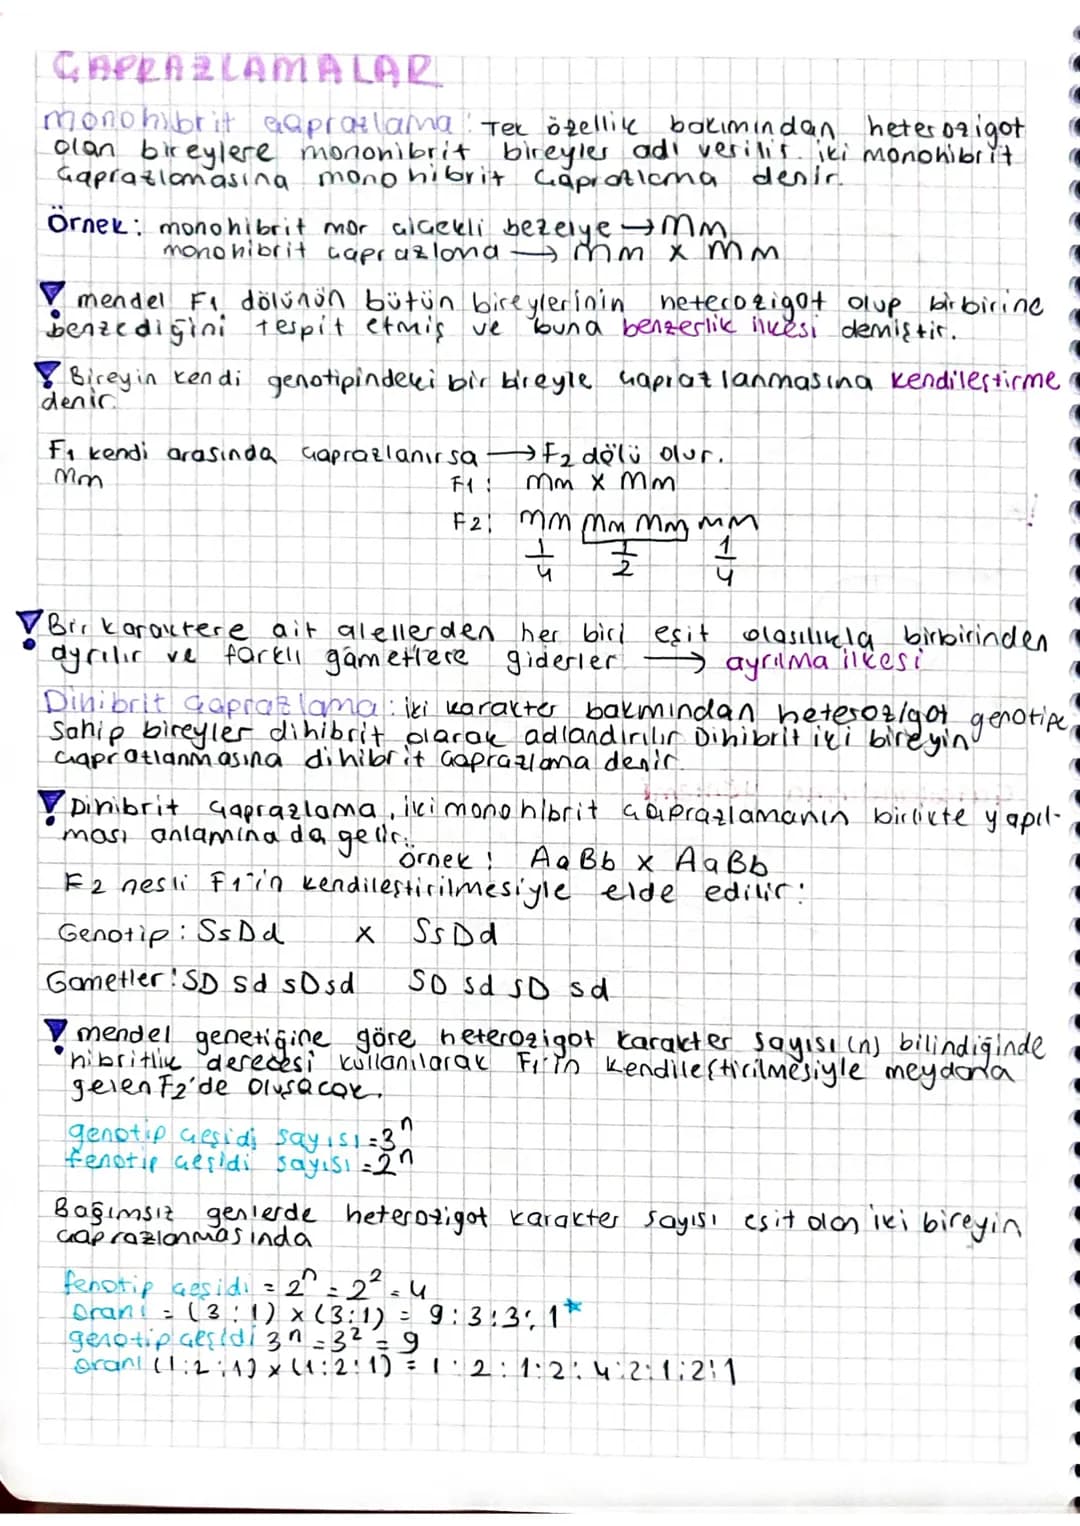 ÇAPRAZLAMALAR
monohibrit çaprazlama: Tek özellik bakımından heterozigot
olan bireylere monohibrit bireyler adı verilir. iki monohibrit
çaprazlamasına monohibrit çaprazlama denir.
Örnek: monohibrit mor çiçekli bezelye → Mm
monohibrit çaprazlama → Mm x Mm
mendel F1 dölünün bütün bireylerinin heterozigot olup birbirine
benzediğini tespit etmiş ve buna benzerlik ilkesi demiştir.
Bireyin kendi genotipindeki bir bireyle çaprazlanmasına kendileştirme
denir.
F1 kendi arasında çaprazlanırsa → F2 dölü olur.
Mm F1: Mm x Mm
F2: MM Mm Mm mm
1/4 1/2 1/4
Bir karaktere ait alellerden her biri eşit olasılıkla birbirinden
ayrılır ve farklı gametlere giderler → ayrılma ilkesi
Dihibrit çaprazlama: iki karakter bakmından heterozigot genotipe
Sahip bireyler dihibrit olarak adlandırılır Dihibrit iki bireyin
çaprazlanmasına dihibrit çaprazlama denir.
Dihibrit çaprazlama, iki monohibrit çaprazlamanın birlikte yapıl-
ması anlamına da gelir.
örnek: AaBb x AaBb
F2 nesli F1'in kendileştirilmesiyle elde edilir:
Genotip: SsDd x SsDd
Gametler: SD Sd sD sd SD Sd sD sd
mendel genetiğine göre heterozigot karakter sayısı (n) bilindiğinde
hibritlik derecesi kullanılarak F1'in kendileştirilmesiyle meydana
gelen F2'de oluşacak.
genotip çeşidi sayısı = 3ⁿ
fenotip çeşidi sayısı = 2ⁿ
Bağımsız genlerde heterozigot karakter sayısı eşit olan iki bireyin
çaprazlanmasında
fenotip çeşidi = 2ⁿ = 2² = 4
Oranı = (3:1) x (3:1) = 9:3:3:1*
genotip çeşidi 3ⁿ = 3² = 9
oranı (1:2:1) x (1:2:1) = 1:2:1:2:4:2:1:2:1